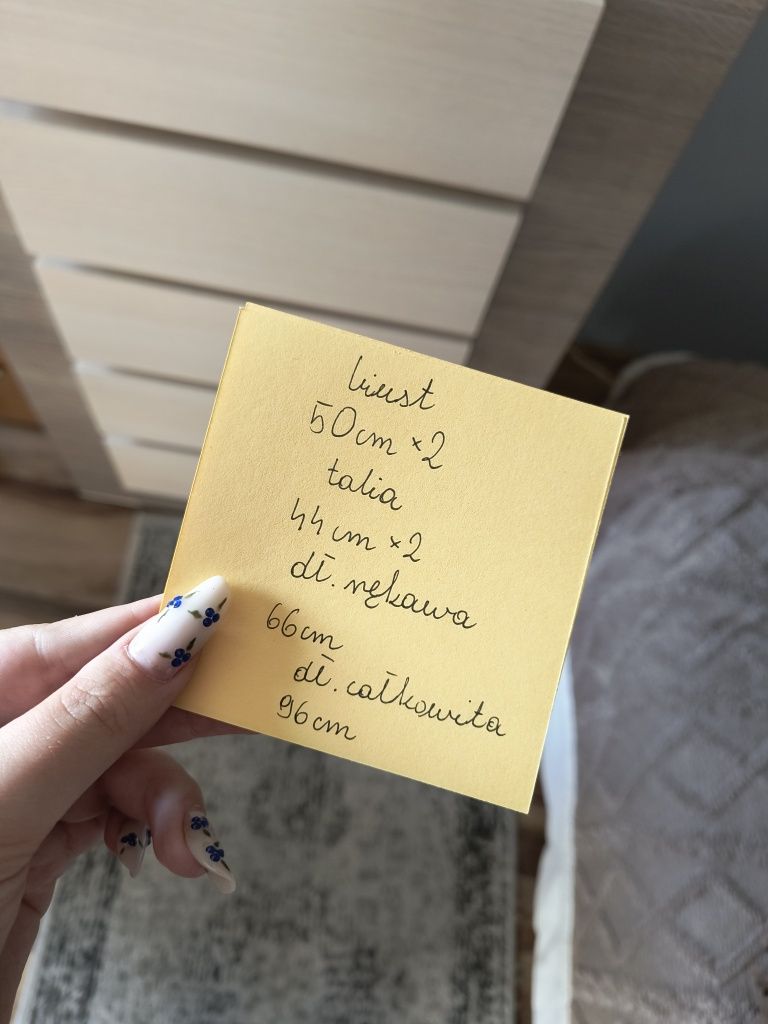 biust
50cm ×2
talia
44cm ×2
dł. rękawa
66cm
dł. całkowita
96cm